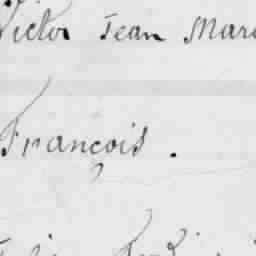 Victor Jean Mari
François.